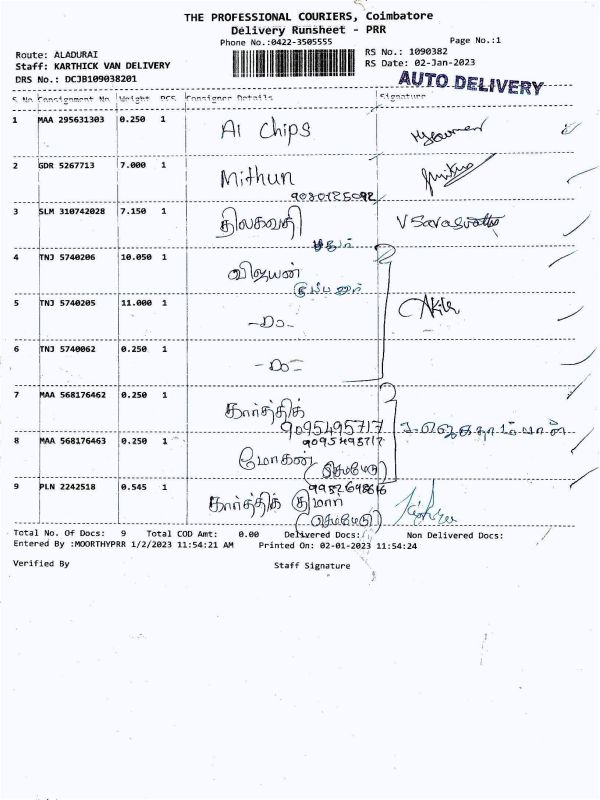 THE PROFESSIONAL COURIERS, Coimbatore
Delivery Runsheet - PRR
Phone No.:0422-3505555
Page No.:1
Route: ALADURAI
RS No.: 1090382
Staff: KARTHICK VAN DELIVERY
RS Date: 02-Jan-2023
DRS No.: DCJB109038201
AUTO DELIVERY
S No Consignment No Weight PCS Consignee Details Signature
1 MAA 295631303 0.250 1 A1 Chips
2 GDR 5267713 7.000 1 Mithun
3 SLM 310742028 7.150 1 திலகவதி V Saraswathi
4 TNJ 5740206 10.050 1 விஜயன்
5 TNJ 5740205 11.000 1 -Do-
6 TNJ 5740062 0.250 1 -Do-
7 MAA 568176462 0.250 1 கார்த்திக்
9095495717
9095495717
8 MAA 568176463 0.250 1 மோகன்
9 PLN 2242518 0.545 1 கார்த்திக் குமார்
Total No. Of Docs: 9 Total COD Amt: 0.00 Delivered Docs: Non Delivered Docs:
Entered By :MOORTHYPRR 1/2/2023 11:54:21 AM Printed On: 02-01-2023 11:54:24
Verified By Staff Signature